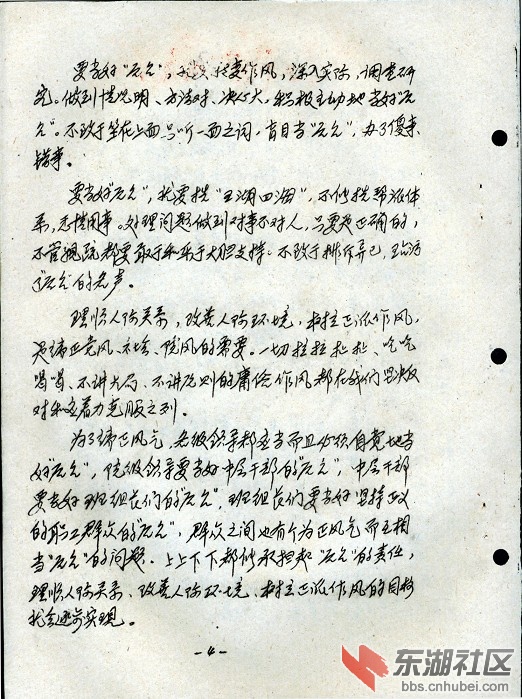 要当好“后台”，就要转变作风，深入实际，调查研
究。做到情况明、方法对、决心大，积极主动地当好“后
台”。不致于坐在上面只听一面之词，盲目当“后台”，办了傻事
错事。
要当好“后台”，就要搞“五湖四海”，不能搞帮派体
系，感情用事。处理问题做到对事不对人，只要是正确的，
不管亲疏都要敢于和乐于大胆支持。不致于排斥异己，玷污
了“后台”的名声。
理顺人际关系，改善人际环境，树立正派作风，
是端正党风、社会、院风的需要。一切拉拉扯扯、吃吃
喝喝、不讲大局、不讲原则的庸俗作风都在我们坚决反
对和着力克服之列。
为了端正风气，各级领导都应当而且必须自觉地当
好“后台”，院级领导要当好中层干部的“后台”，中层干部
要当好班组长们的“后台”，班组长们要当好坚持正义
的职工群众的“后台”，群众之间也有个为正风气而互相
当“后台”的问题。上上下下都能承担起“后台”的责任，
理顺人际关系、改善人际环境、树立正派作风的目标
就会逐步实现。
-4-
东湖社区
bbs.cnhubei.com